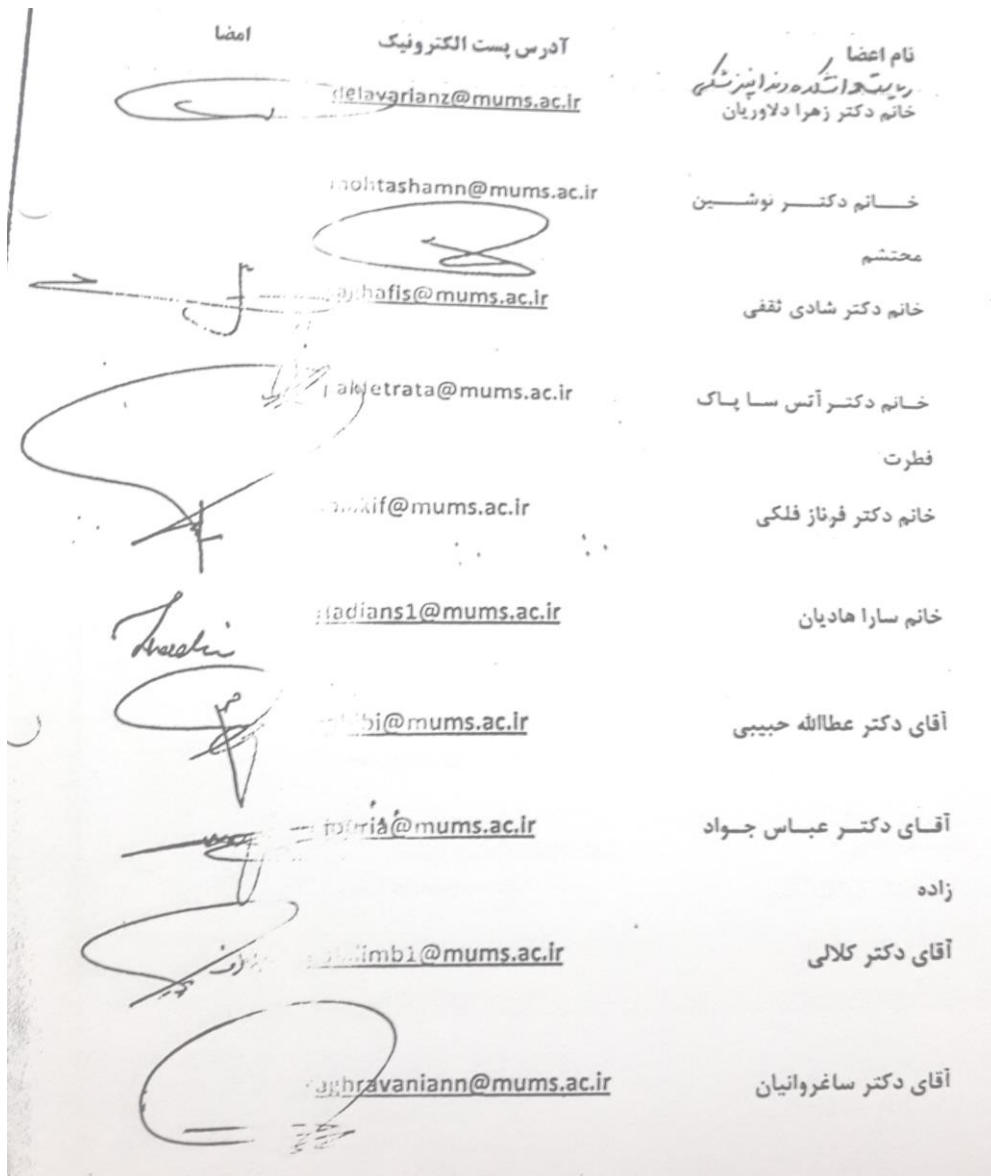 نام اعضا آدرس پست الکترونیک امضا
خانم دکتر زهرا دلاوریان delavarianz@mums.ac.ir
خانم دکتر نوشین mohtashamn@mums.ac.ir
محتشم
خانم دکتر شادی ثقفی hafis@mums.ac.ir
خانم دکتر آتس سا پاک etrata@mums.ac.ir
فطرت
خانم دکتر فرناز فلکی kif@mums.ac.ir
خانم سارا هادیان hadians1@mums.ac.ir
آقای دکتر عطاالله حبیبی ibi@mums.ac.ir
آقای دکتر عباس جواد @mums.ac.ir
زاده
آقای دکتر کلالی imb1@mums.ac.ir
آقای دکتر ساغروانیان aghravaniann@mums.ac.ir